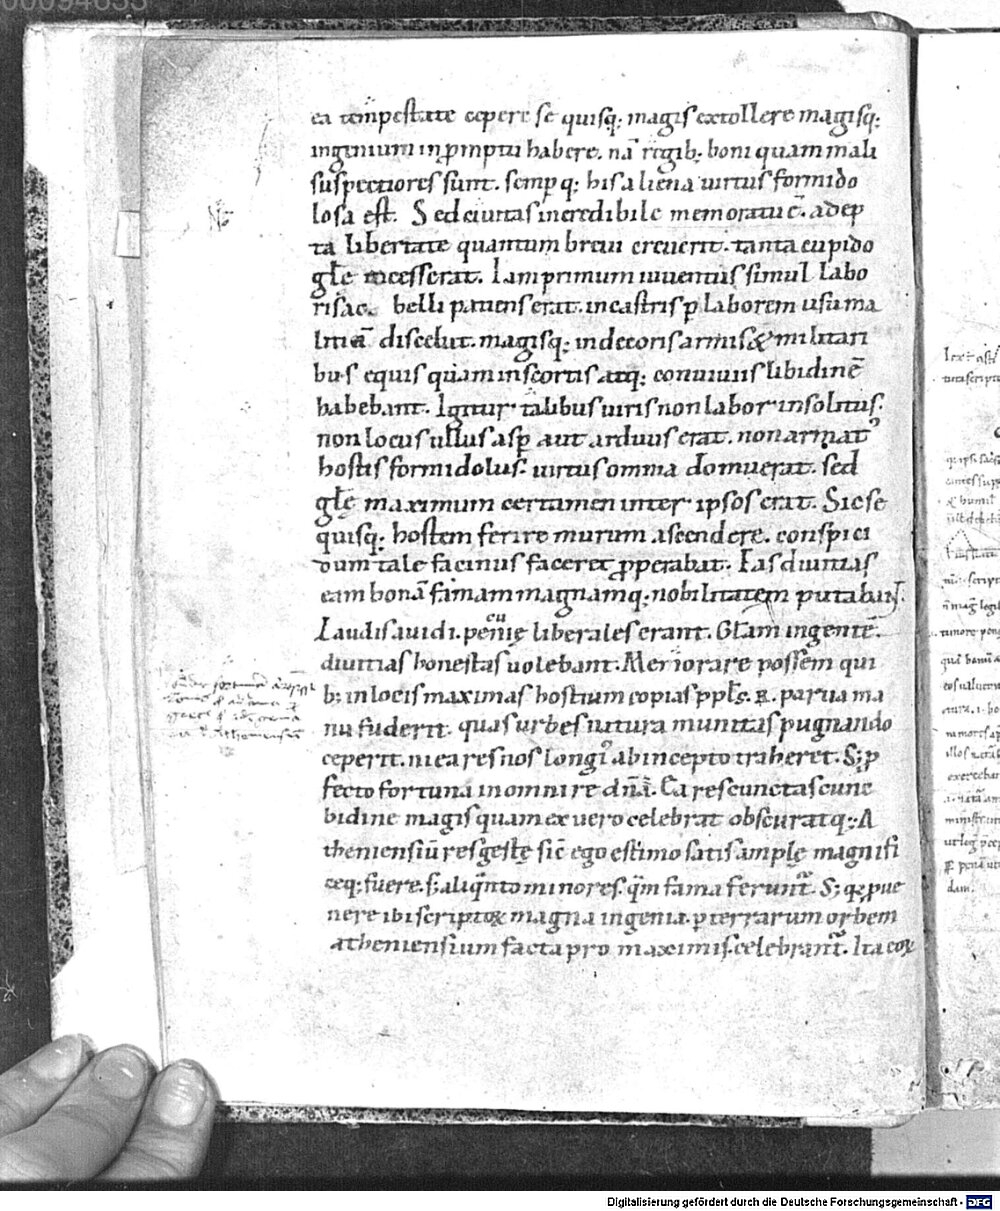 00094635
ea tempestate cepere se quisq; magis extollere magisq;
ingenium in promptu habere. nā regib; boni quam mali
suspectiores sunt. semp q; his aliena uirtus formido
losa est. Sed ciuitas incredibile memoratu ē. adep
ta libertate quantum breui creuerit. tanta cupido
glę incesserat. Iam primum iuuentus simul labo
ris ac belli patiens erat. in castris p laborem usu ma
litiā discebat. magisq; in decoris armis & militari
bus equis quam in scortis atq; conuiuiis libidinē
habebant. Igitur talibus uiris non labor insolitus.
non locus ullus asp aut arduus erat. non armatꝰ
hostis formidolus. uirtus omnia domuerat. sed
glę maximum certamen inter ipsos erat. Sic se
quisq; hostem ferire murum ascendere. conspici
dum tale facinus faceret pperabat. Eas diuitias
eam bonā famam magnamq; nobilitatem putabant.
Laudis auidi. pecunię liberales erant. Glām ingentē.
diuitias honestas uolebant. Memorare possem qui
b; in locis maximas hostium copias ppls R. parua ma
nu fuderit. quas urbes natura munitas pugnando
ceperit. ni ea res nos longiꝰ ab incepto traheret. S; p
fecto fortuna in omni re dnāt. Ea res cunctas c lune
bidine magis quam ex uero celebrat obscuratq;. A
theniensiū res gestę sic ego estimo satis amplę magnifi
ceq; fuere. s; aliqnto minores. qm fama feruntr. S; q pue
nere ibi scriptoꝝ magna ingenia. p terrarum orbem
atheniensium facta pro maximis celebrantr. Ita eoꝝ
Digitalisierung gefördert durch die Deutsche Forschungsgemeinschaft - DFG